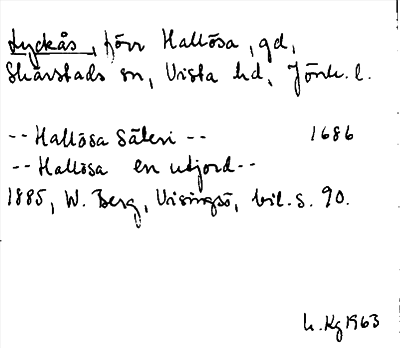 Lyckås, förr Hallösa, gd,
Skärstads sn, Vista hd, Jönk. l.
-- Hallösa Säteri -- 1686
-- Hallösa en utjord --
1885, W. Berg, Visingsö, bil. s. 90.
h. Kg 1963